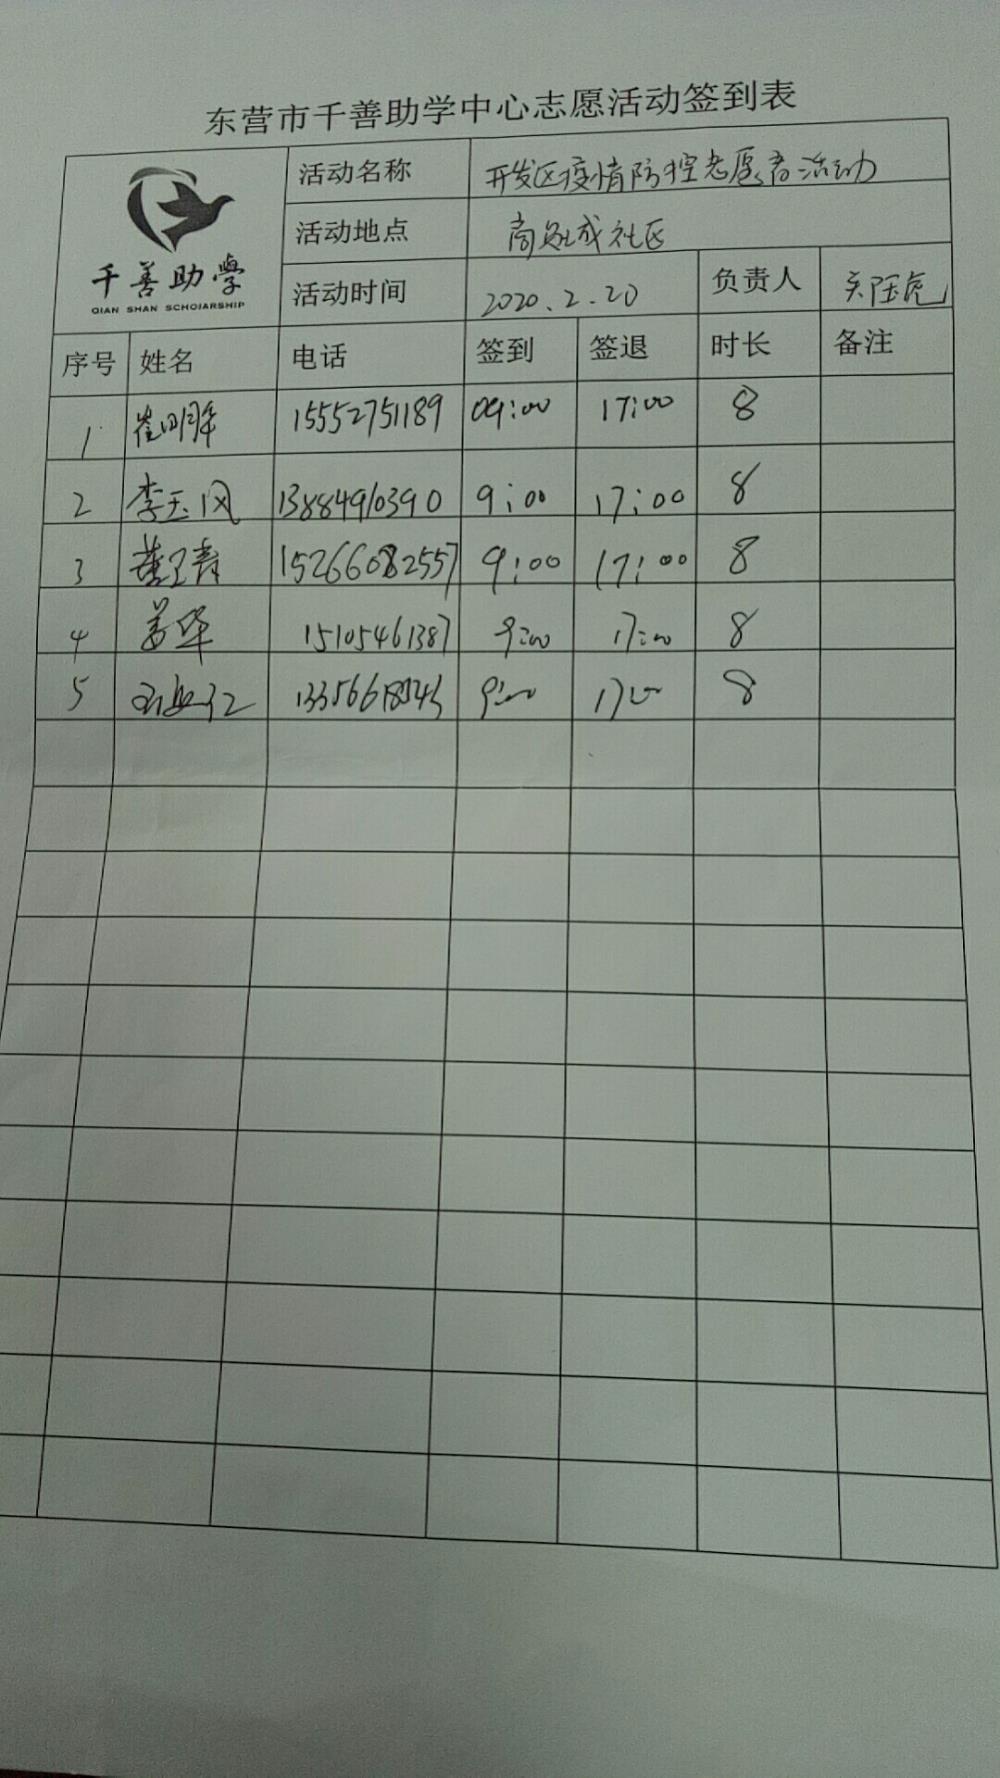 东营市千善助学中心志愿活动签到表
千善助学
QIAN SHAN SCHOIARSHIP
活动名称 开发区疫情防控志愿者活动
活动地点 商贸城社区
活动时间 2020.2.20 负责人
序号 姓名 电话 签到 签退 时长 备注
1 崔明年 15552751189 09:00 17:00 8
2 李玉风 13884910390 9:00 17:00 8
3 15266082557 9:00 17:00 8
4 姜华 15105461387 9:00 17:00 8
5 9:00 17:00 8